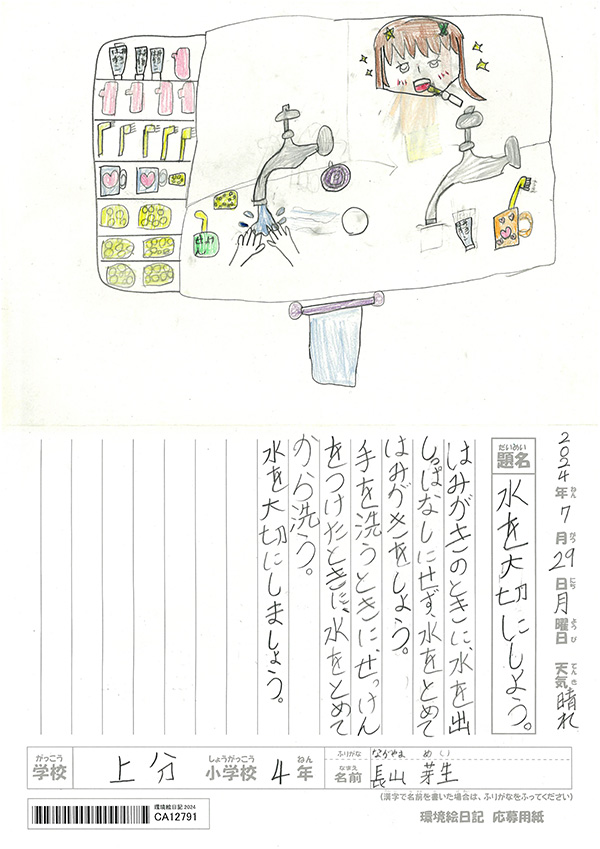 せっけん
2024年ねん7月がつ29日にち月曜日ようび 天気てんき晴れ
題名だいめい 水を大切にしよう。
はみがきのときに、水を出
しっぱなしにせず、水をとめて
はみがきをしよう。
手を洗うときに、せっけん
をつけたときに、水をとめて
から洗う。
水を大切にしましょう。
がっこう しょうがっこう ねん
学校 上分 小学校 4年
ふりがな ながやま めい
なまえ
名前 長山 芽生
(漢字で名前を書いた場合は、ふりがなをふってください)
環境絵日記2024
CA12791
環境絵日記 応募用紙